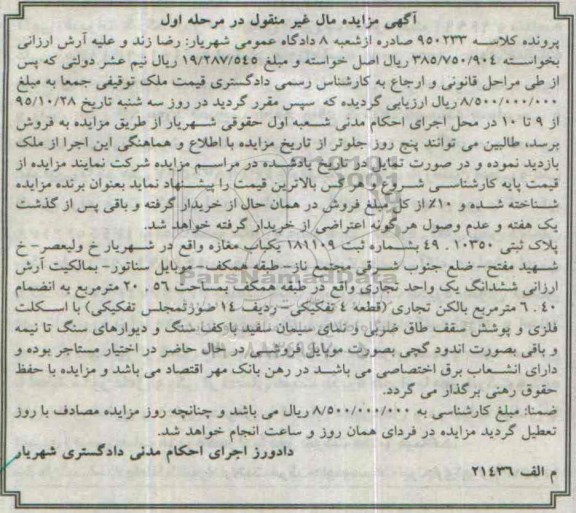 آگهی مزایده مال غیر منقول در مرحله اول
پرونده کلاسه ۹۵۰۲۳۳ صادره ازشعبه ۸ دادگاه عمومی شهریار: رضا زند و علیه آرش ارزانی
بخواسته ۳۸۵/۷۵۰/۹۰۴ ریال اصل خواسته و مبلغ ۱۹/۲۸۷/۵۴۵ ریال نیم عشر دولتی که پس
از طی مراحل قانونی و ارجاع به کارشناس رسمی دادگستری قیمت ملک توقیفی جمعا به مبلغ
۸/۵۰۰/۰۰۰/۰۰۰ ریال ارزیابی گردیده که سپس مقرر گردید در روز سه شنبه تاریخ ۹۵/۱۰/۲۸
از ۹ تا ۱۰ در محل اجرای احکام مدنی شعبه اول حقوقی شهریار از طریق مزایده به فروش
برسد، طالبین می توانند پنج روز جلوتر از تاریخ مزایده با اطلاع و هماهنگی این اجرا از ملک
بازدید نموده و در صورت تمایل در تاریخ یادشده در مراسم مزایده شرکت نمایند مزایده از
قیمت پایه کارشناسی شروع و هر کس بالاترین قیمت را پیشنهاد نماید بعنوان برنده مزایده
شناخته شده و ۱۰٪ از کل مبلغ فروش در همان حال از خریدار گرفته و باقی پس از گذشت
یک هفته و عدم وصول هر گونه اعتراضی از خریدار گرفته خواهد شد.
پلاک ثبتی ۱۰۳۵۰ . ۴۹ بشماره ثبت ۱۸۱۱۰۹ یکباب مغازه واقع در شهریار خ ولیعصر- خ
شهید مفتح- ضلع جنوب شرقی مجتمع ناز- طبقه همکف - موبایل سناتور- بمالکیت آرش
ارزانی ششدانگ یک واحد تجاری واقع در طبقه همکف بمساحت ۵۶ . ۲۰ مترمربع به انضمام
۴۰ . ۶ مترمربع بالکن تجاری (قطعه ۴ تفکیکی- ردیف ۱۴ صورتمجلس تفکیکی) با اسکلت
فلزی و پوشش سقف طاق ضربی و نمای سیمان سفید با کف سنگ و دیوارهای سنگ تا نیمه
و باقی بصورت اندود گچی بصورت موبایل فروشی در حال حاضر در اختیار مستاجر بوده و
دارای انشعاب برق اختصاصی می باشد در رهن بانک مهر اقتصاد می باشد و مزایده با حفظ
حقوق رهنی برگذار می گردد.
ضمنا: مبلغ کارشناسی به ۸/۵۰۰/۰۰۰/۰۰۰ ریال می باشد و چنانچه روز مزایده مصادف با روز
تعطیل گردید مزایده در فردای همان روز و ساعت انجام خواهد شد.
دادورز اجرای احکام مدنی دادگستری شهریار
م الف ۲۱۴۳۶
ParsNamadData